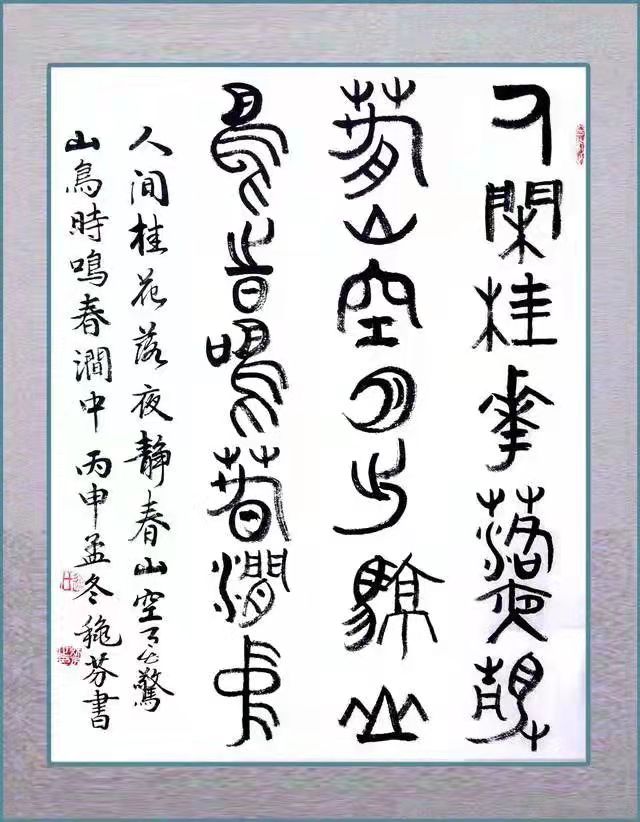 人閑桂華落夜靜
春山空月出驚山
鳥時鳴春澗中
人间桂花落夜静春山空月出驚
山鳥時鳴春澗中 丙申孟冬 穐芬書